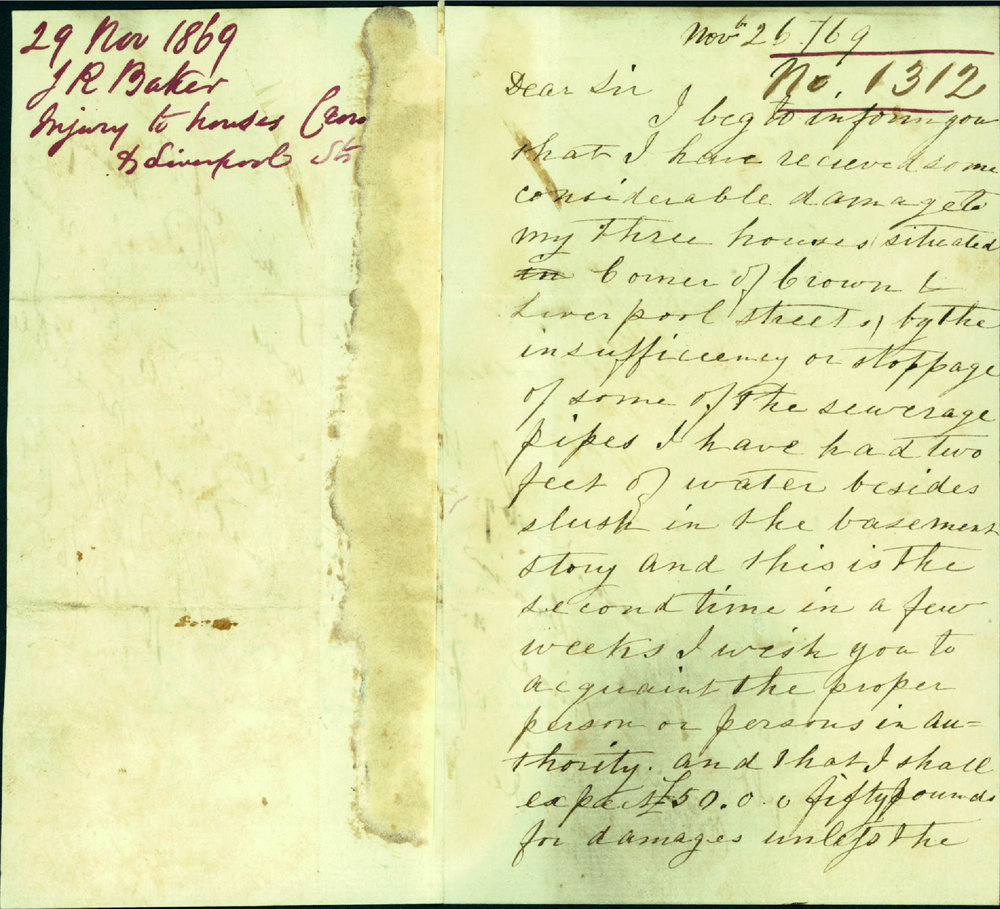 29 Nov 1869
J R Baker
Injury to houses
& Liverpool St
Nov.r 26 /69
No. 1312
Dear Sir
I beg to inform you
that I have recieved some
considerable damage to
my three houses situated
in Corner of Crown &
Liverpool streets, by the
insufficiency or stoppage
of some of the sewerage
pipes I have had two
feet of water besides
slush in the basement
story and this is the
second time in a few
weeks I wish you to
acquaint the proper
person or persons in au=
thority. and that I shall
expect £50.0.0 fifty pounds
for damages unless the